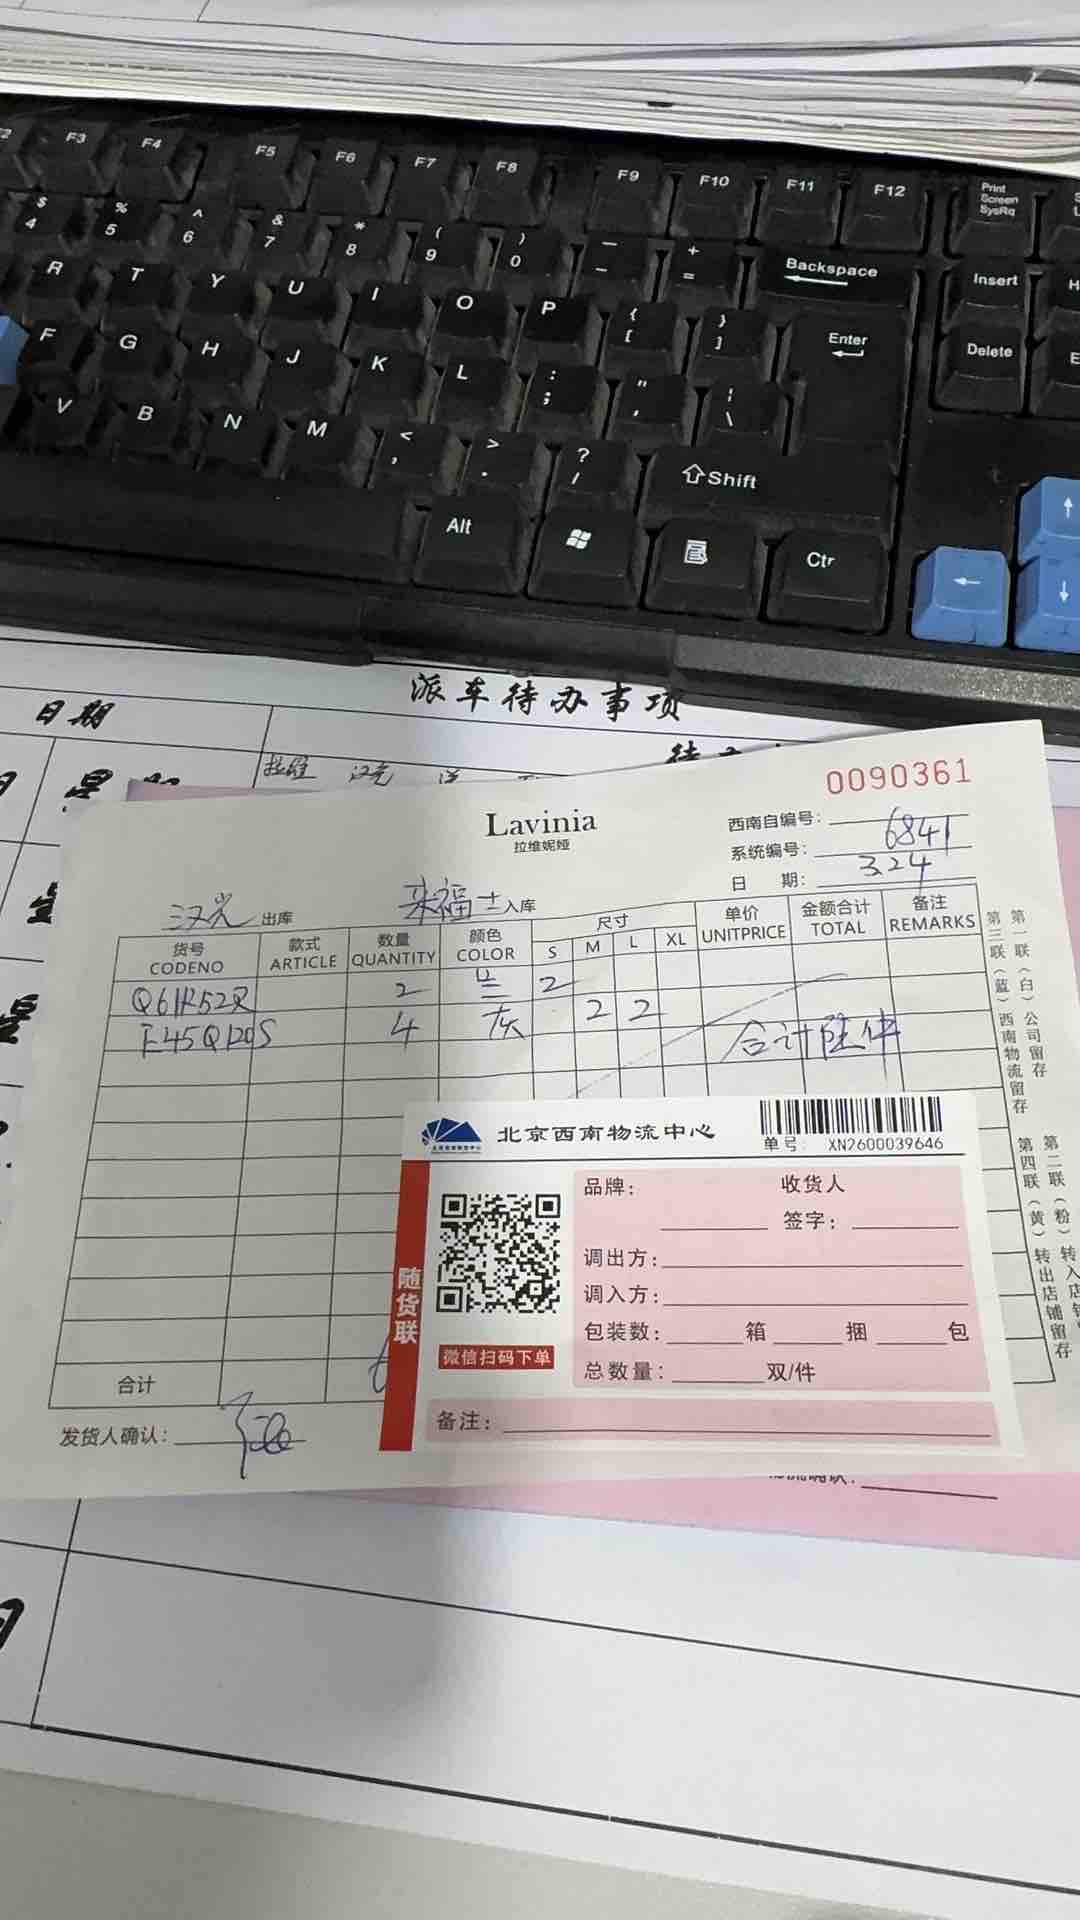 F3 F4 F5 F6 F7 F8 F9 F10 F11 F12 Print Screen SysRq
$ 4 % 5 ^ 6 & 7 * 8 ( 9 ) 0 — - + = Backspace Insert
R T Y U I O P { [ } ] Enter Delete
F G H J K L : ; " ' ¦ \
V B N M < , > . ? / Shift
Alt Ctr
派车待办事项
日期
0090361
Lavinia
拉维妮娅
西南自编号:
系统编号: 6841
日 期: 3.24
汉光 出库 来福士 入库
货号 CODENO 款式 ARTICLE 数量 QUANTITY 颜色 COLOR 尺寸 S M L XL 单价 UNITPRICE 金额合计 TOTAL 备注 REMARKS
2 2
4 灰 2 2
合计陆件
合计
发货人确认:
第一联(白)公司留存 第二联(粉)
第三联(蓝)西南物流留存 第四联(黄)转出店铺留存
北京西南物流中心
单号: XN2600039646
随货联
微信扫码下单
品牌: 收货人
签字:
调出方:
调入方:
包装数: 箱 捆 包
总数量: 双/件
备注: